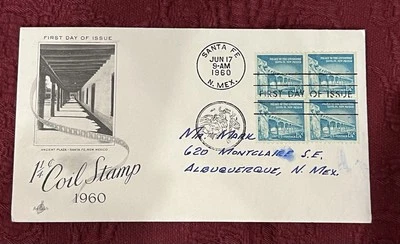 FIRST DAY OF ISSUE
ANCIENT PLAZA - SANTA FE, NEW MEXICO
1¼¢
Coil Stamp
1960
SANTA FE
JUN 17
9-AM
1960
N. MEX.
PALACE OF THE GOVERNORS
SANTA FE, NEW MEXICO
PALACE OF THE GOVERNORS
SANTA FE, NEW MEXICO
FIRST DAY OF ISSUE
MR. MARK
620 MONTCLAIRE S.E.
ALBUQUERQUE, N. MEX.